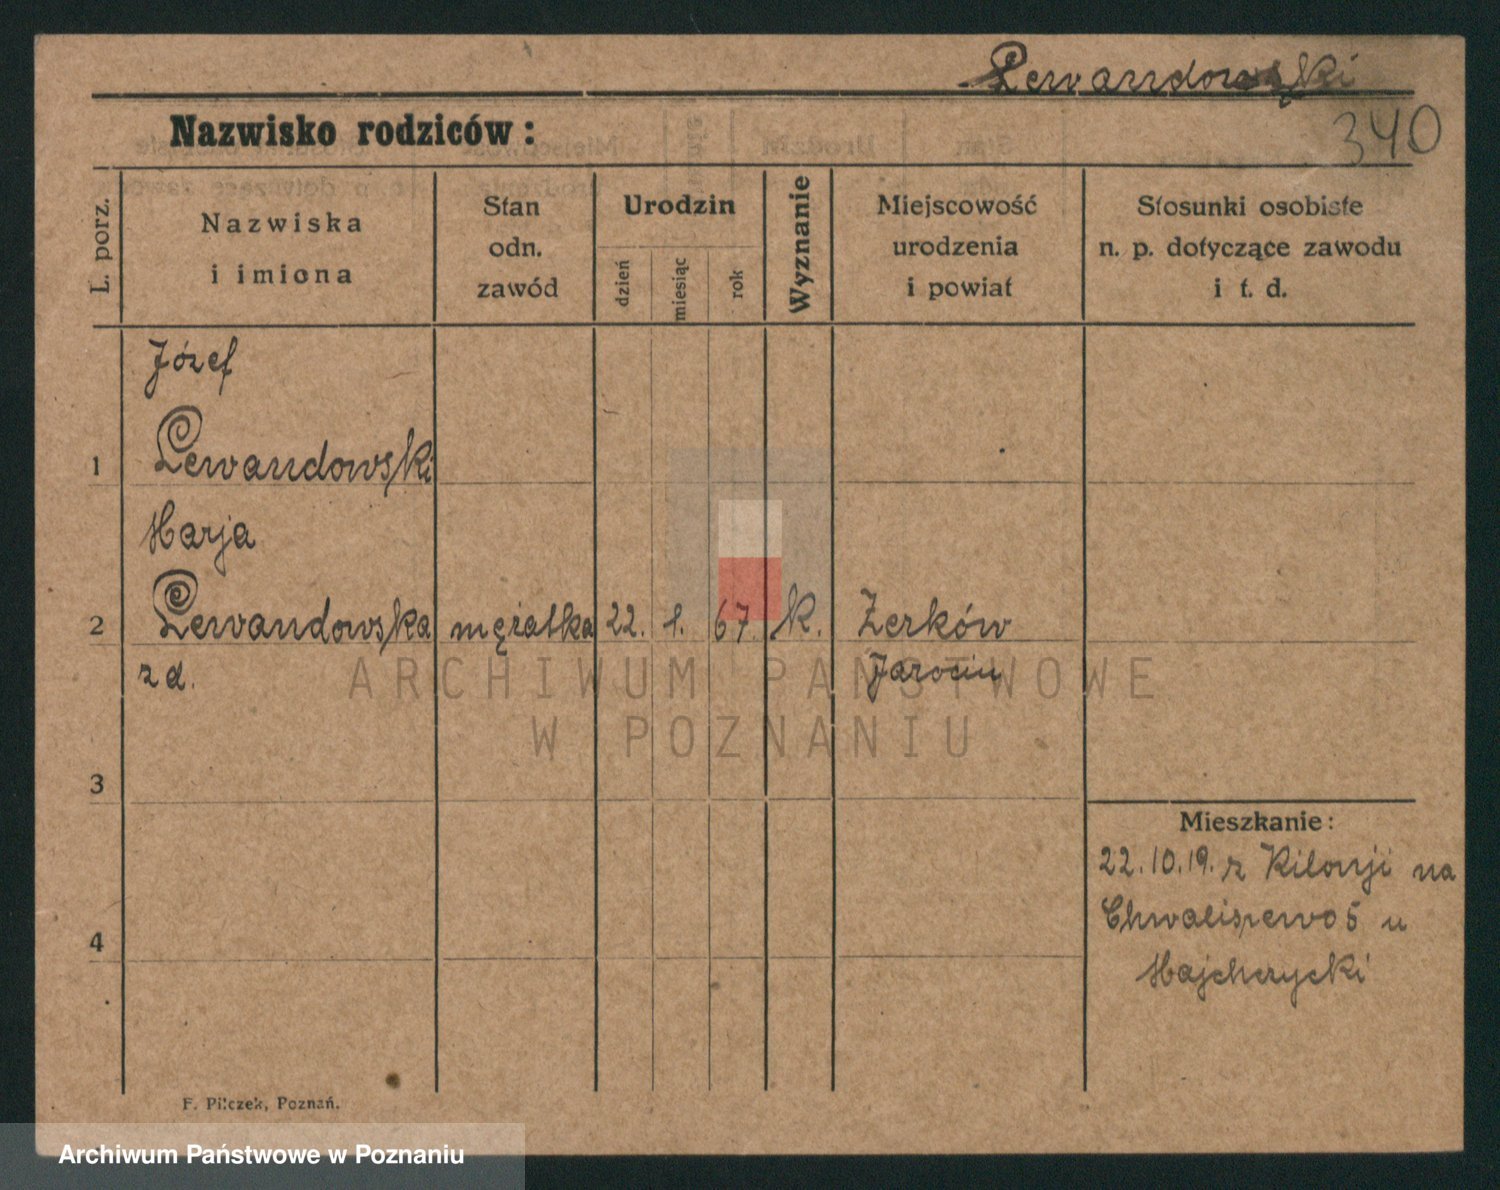 Lewandowski
340
Nazwisko rodziców:
L. porz.
Nazwiska
i imiona
Stan
odn.
zawód
Urodzin
dzień
miesiąc
rok
Wyznanie
Miejscowość
urodzenia
i powiat
Stosunki osobiste
n. p. dotyczące zawodu
i t. d.
Józef
1 Lewandowski
Marja
2 Lewandowska mężatka 22. 1. 67. k. Zerków
zd. Jarocin
ARCHIWUM PAŃSTWOWE
W POZNANIU
3
Mieszkanie:
22.10.19. z Kilonji na
Chwaliszewo 5 u
4
Majcherycki
F. Pilczek, Poznań.
Archiwum Państwowe w Poznaniu